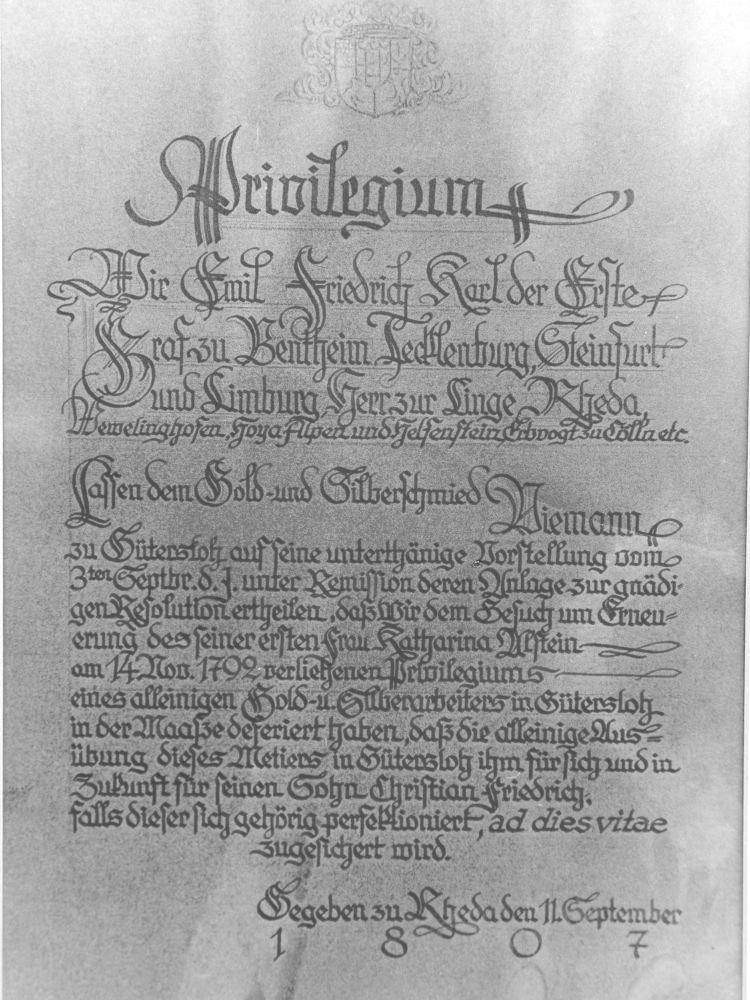 Privilegium
Wir Emil Friedrich Karl der Erste
Graf zu Bentheim Tecklenburg, Steinfurt
und Limburg Herr zur Linge Rheda,
Wewelinghofen, Hoya Alpen und Helfenstein Erbvogt zu Cölln etc.
Lassen dem Gold- und Silberschmied Niemann
zu Gütersloh auf seine unterthänige Vorstellung vom
3ten Septbr. d. J. unter Remission deren Anlage zur gnädi-
gen Resolution ertheilen, daß Wir dem Gesuch um Erneu-
erung des seiner ersten Frau Katharina Alstein
am 14. Nov. 1792 verliehenen Privilegiums
eines alleinigen Gold- u. Silberarbeiters in Gütersloh
in der Maaße deferiert haben, daß die alleinige Aus-
übung dieses Metiers in Gütersloh ihm für sich und in
Zukunft für seinen Sohn Christian Friedrich,
falls dieser sich gehörig perfektioniert, ad dies vitae
zugesichert wird.
Gegeben zu Rheda den 11. September
1 8 0 7